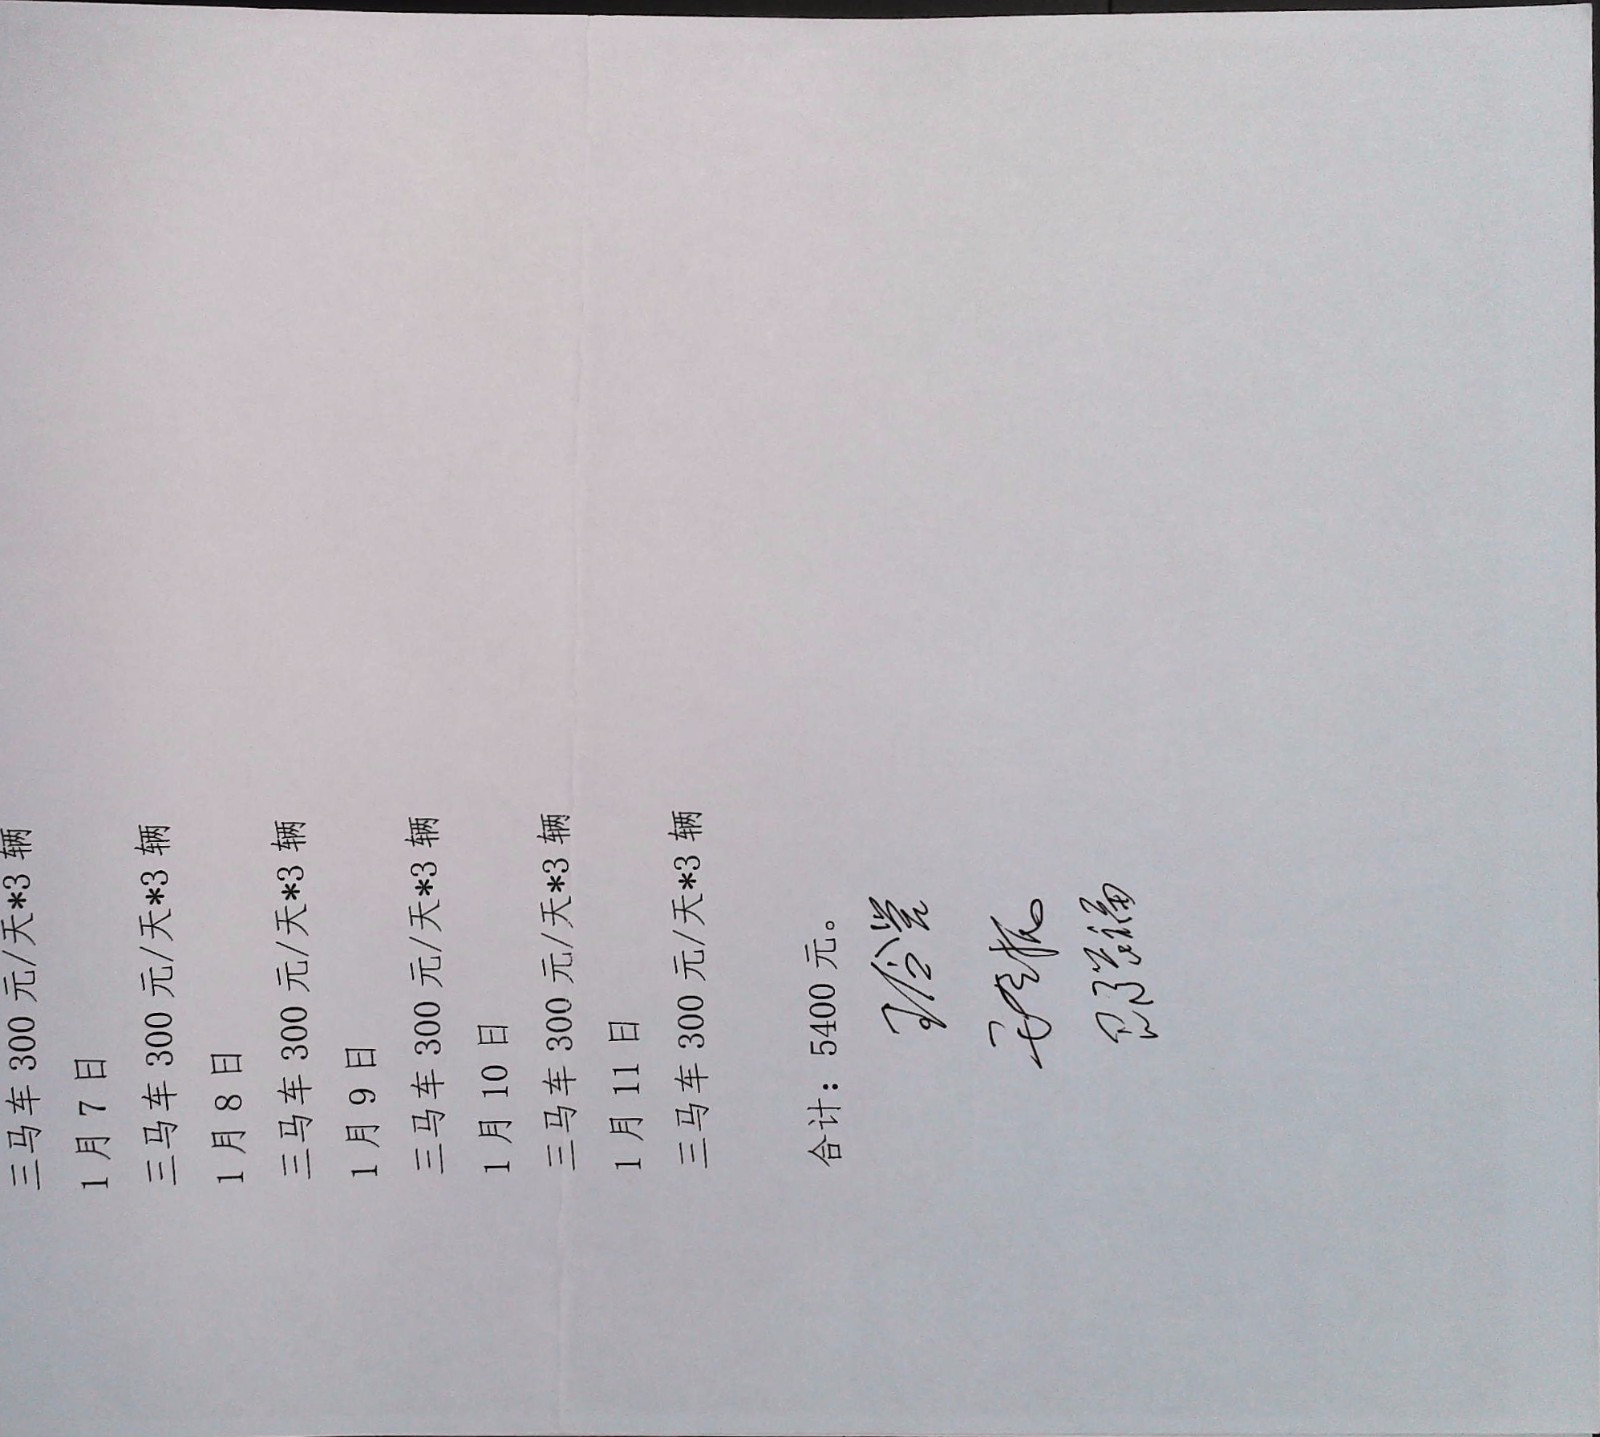 三马车 300 元/天*3 辆
1 月 7 日
三马车 300 元/天*3 辆
1 月 8 日
三马车 300 元/天*3 辆
1 月 9 日
三马车 300 元/天*3 辆
1 月 10 日
三马车 300 元/天*3 辆
1 月 11 日
三马车 300 元/天*3 辆
合计：5400 元。